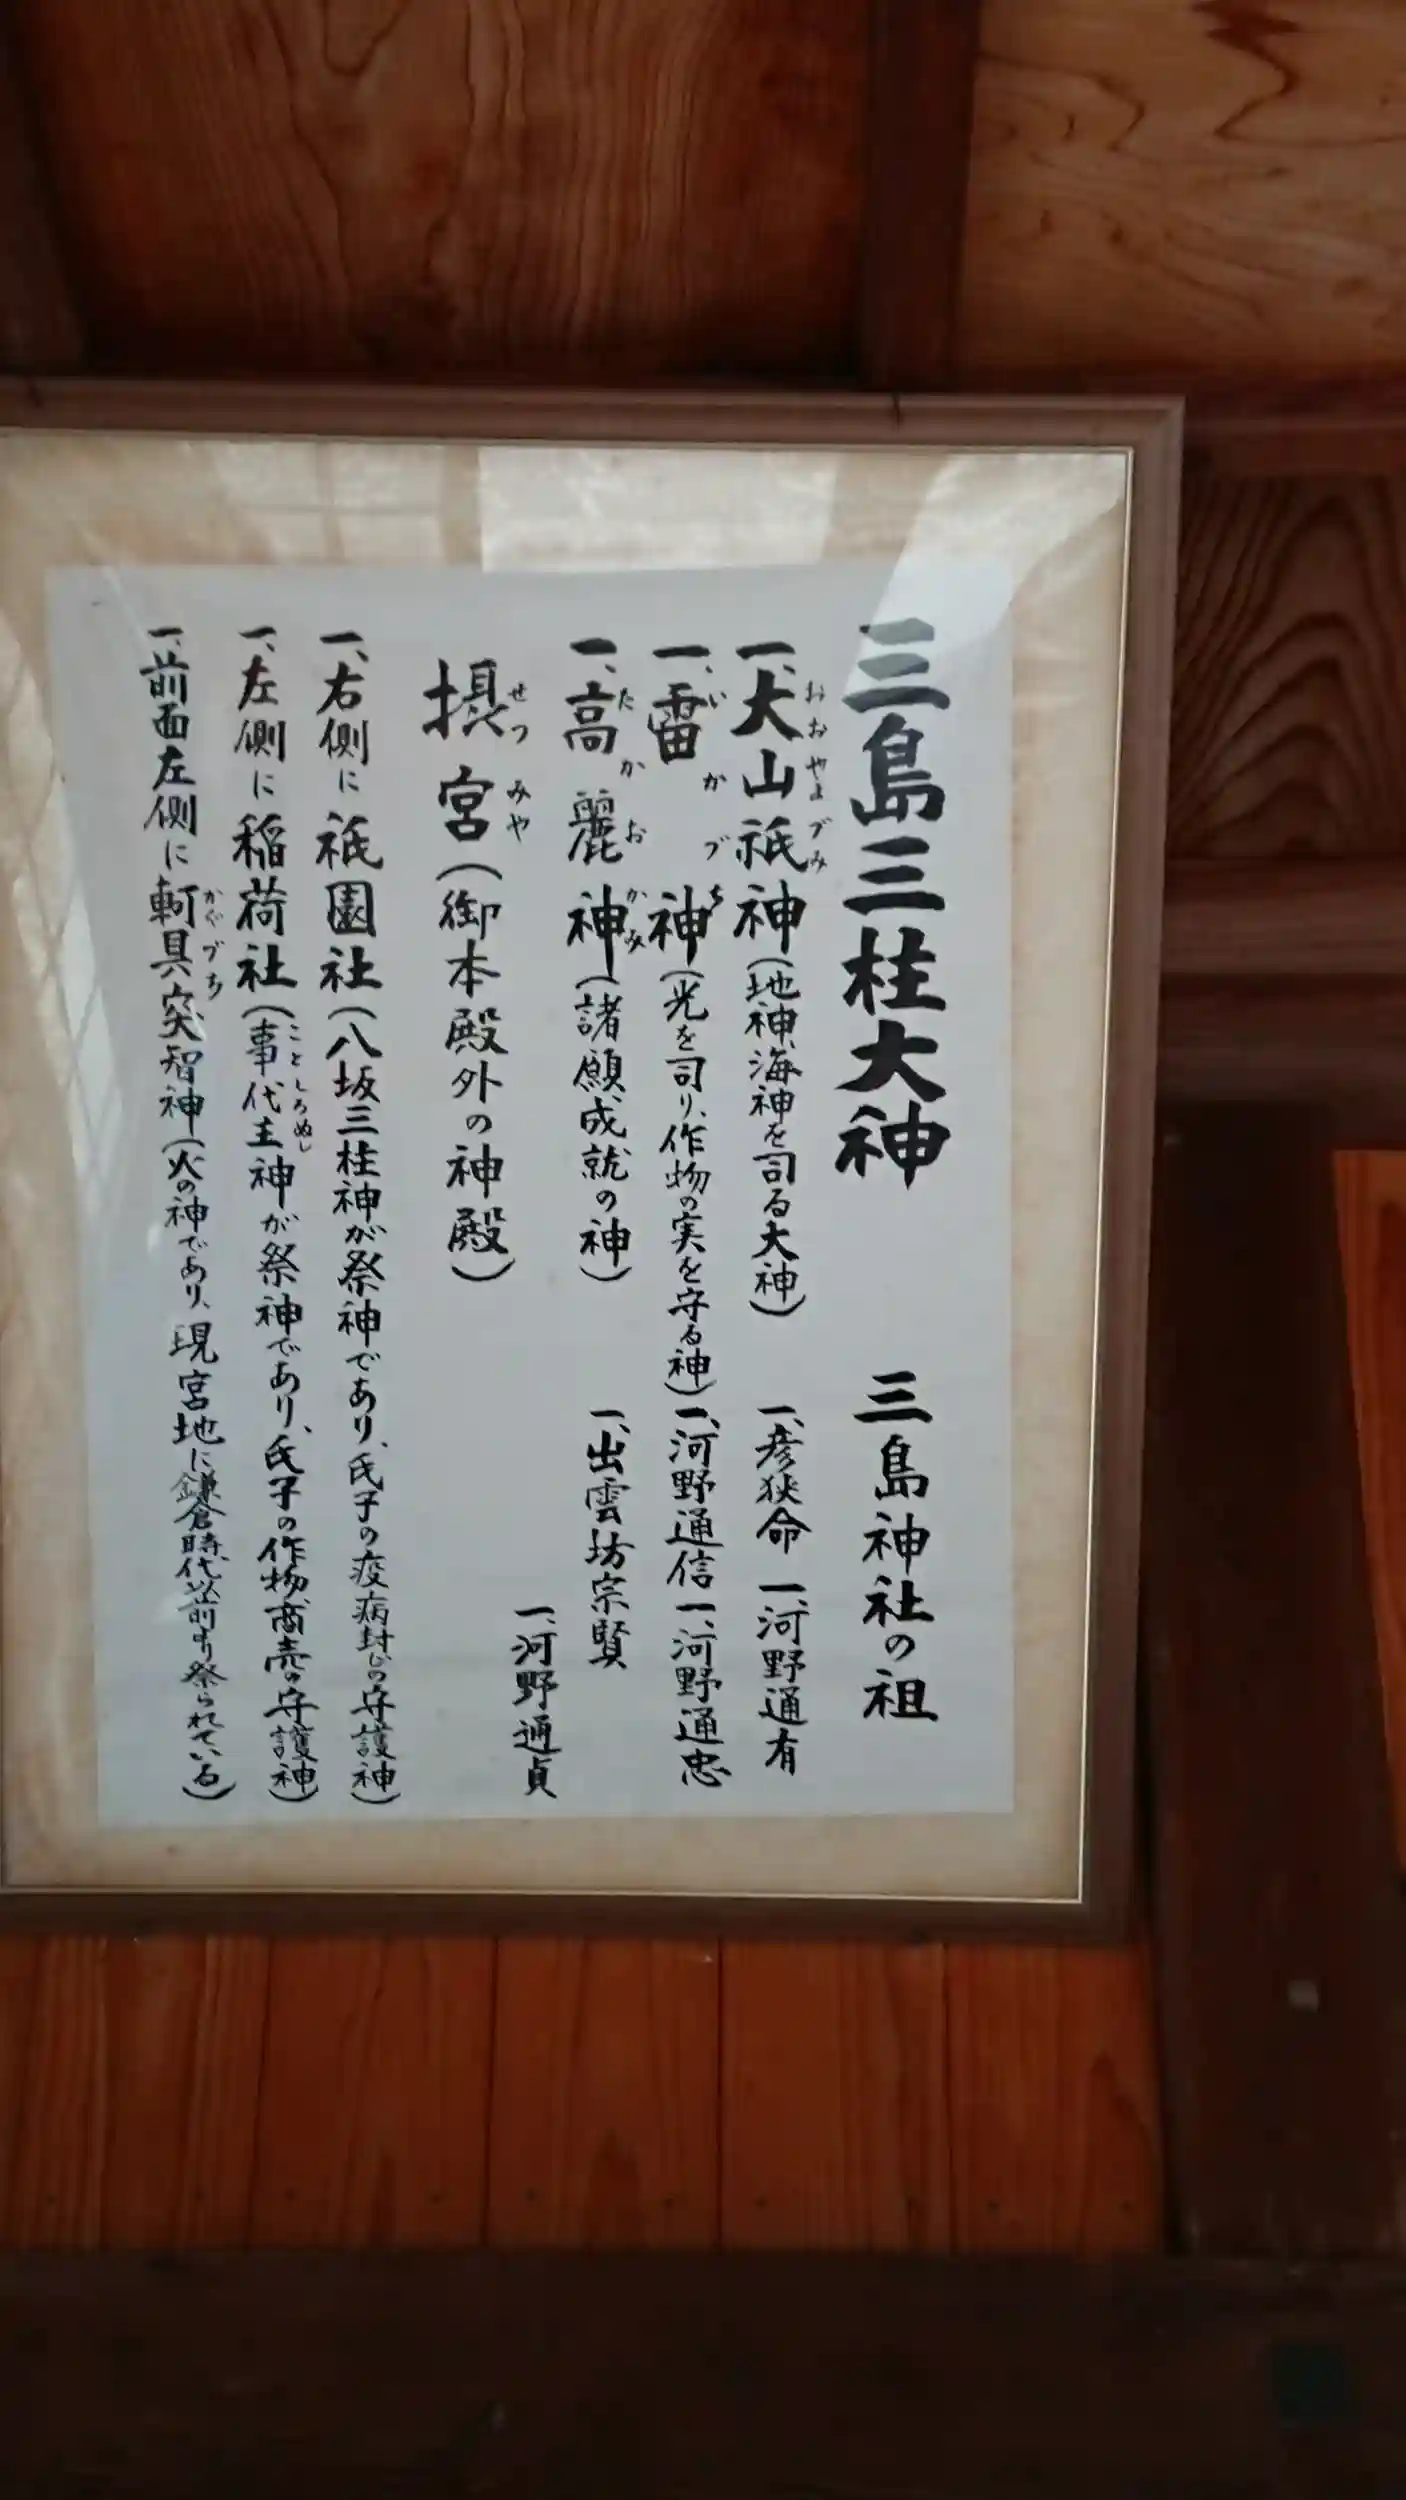 三島三柱大神　三島神社の祖
一、大山祇神(地神、海神を司る大神)　一、彦狭命　一、河野通有
おおやまづみ
一、雷神(光を司り、作物の実を守る神)　一、河野通信　一、河野通忠
いかづち
一、高麗神(諸願成就の神)　一、出雲坊宗賢
たかおかみ
一、河野通貞
摂宮(御本殿外の神殿)
せつみや
一、右側に祇園社(八坂三柱神が祭神であり、氏子の疫病封じの守護神)
一、左側に稲荷社(事代主神が祭神であり、氏子の作物商売の守護神)
ことしろぬし
一、前面左側に軻具突智神(火の神であり、現宮地に鎌倉時代以前より祭られている)
かぐづち